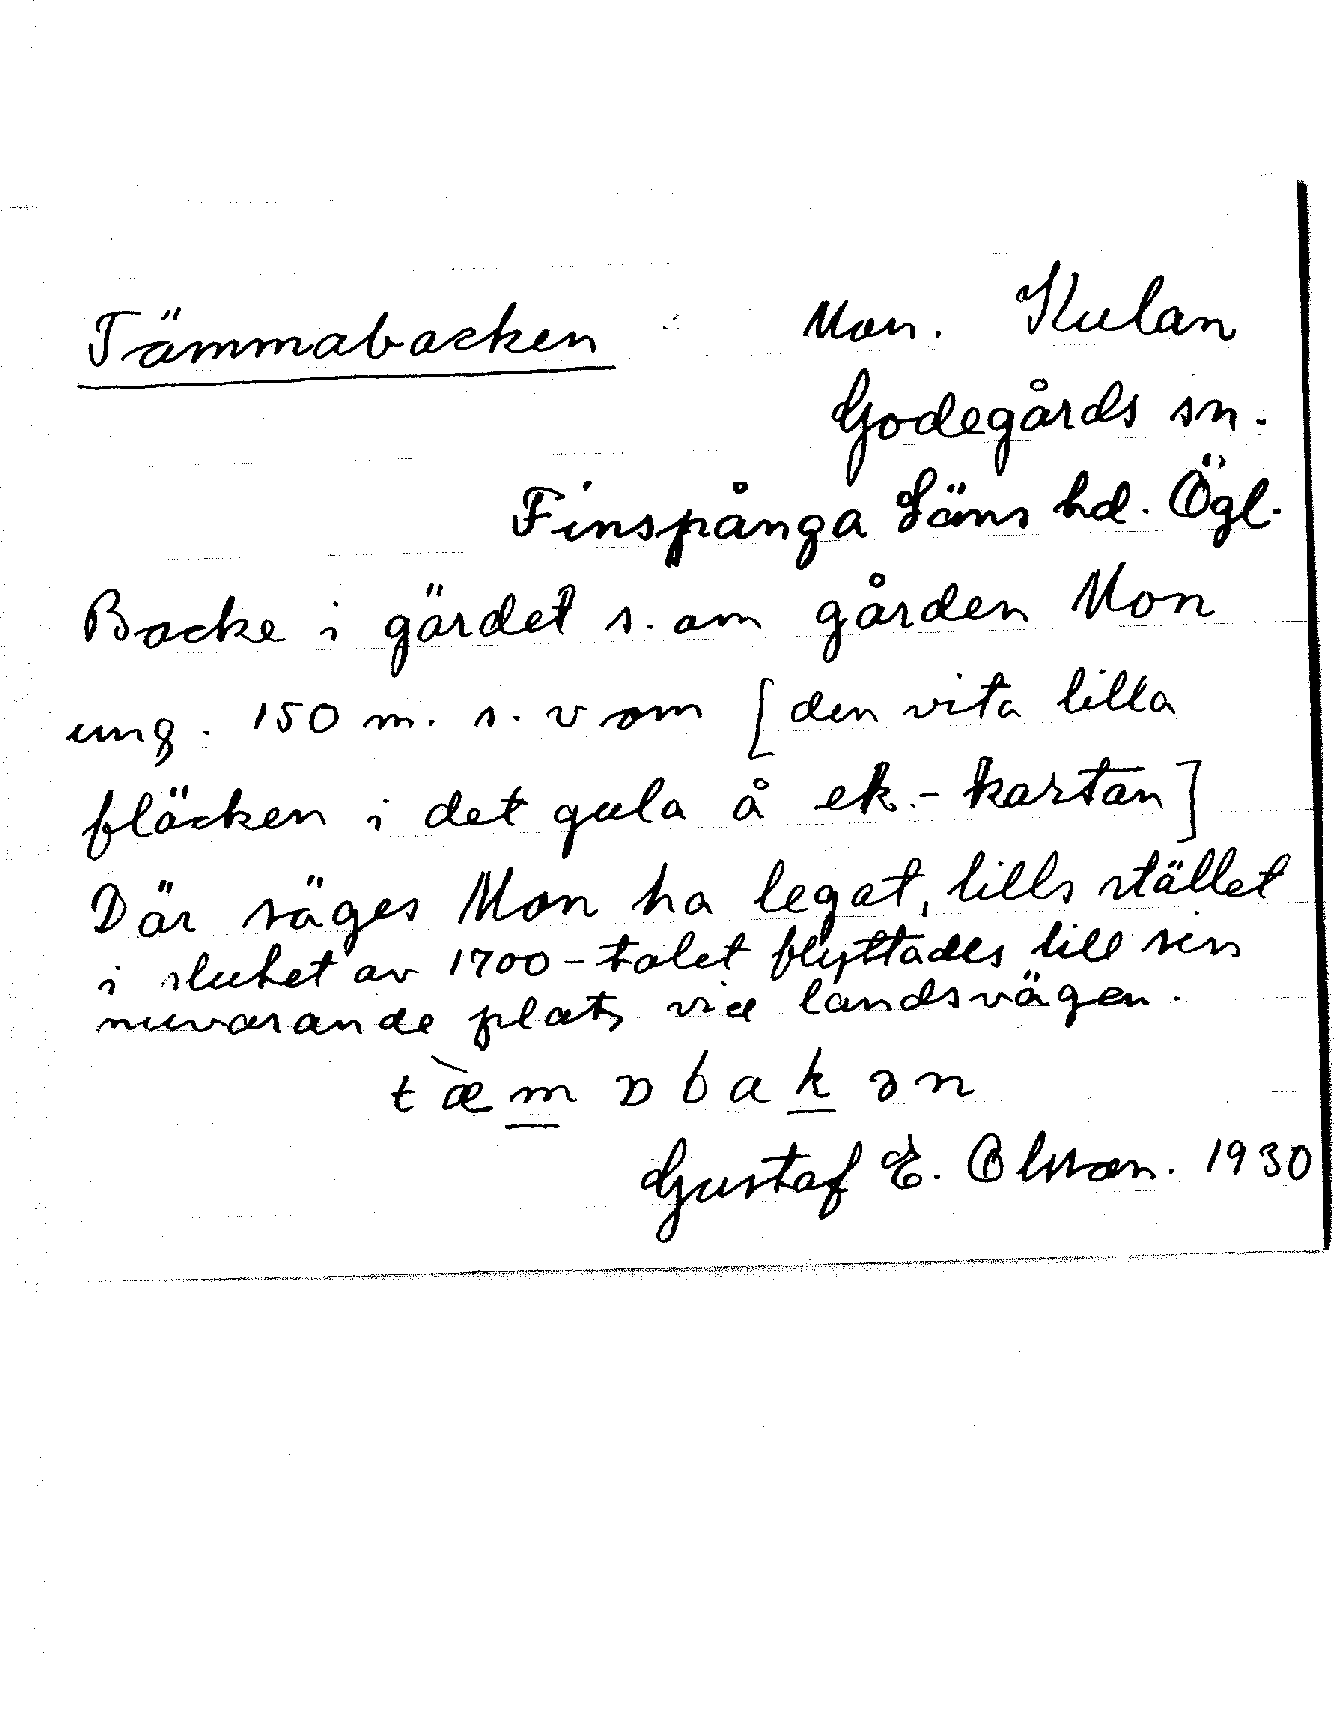 Tämmabacken Mon. Kulan
Godegårds sn.
Finspånga Läns hd. Ögl.
Backe i gärdet s. om gården Mon
ung. 150 m. s. v om [den vita lilla
fläcken i det gula å ek.-kartan]
Där säges Mon ha legat, tills stället
i slutet av 1700-talet flyttades till sin
nuvarande plats vid landsvägen.
tæ̀m̲ɒbak̲ən
Gustaf E. Olsson. 1930